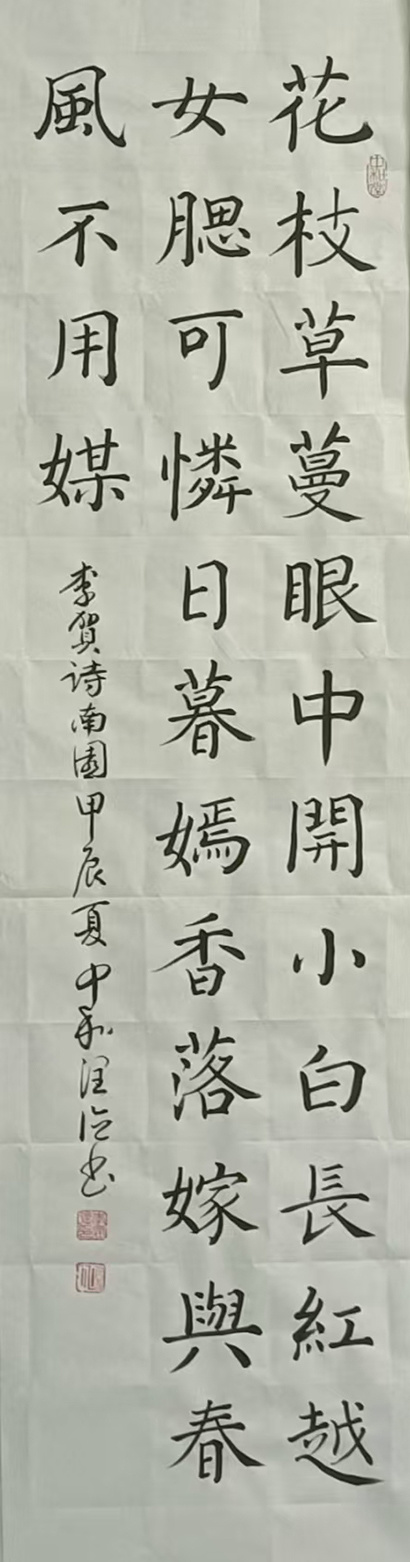 花枝草蔓眼中開小白長紅越
女腮可憐日暮嫣香落嫁與春
風不用媒
李賀詩南園甲辰夏中和